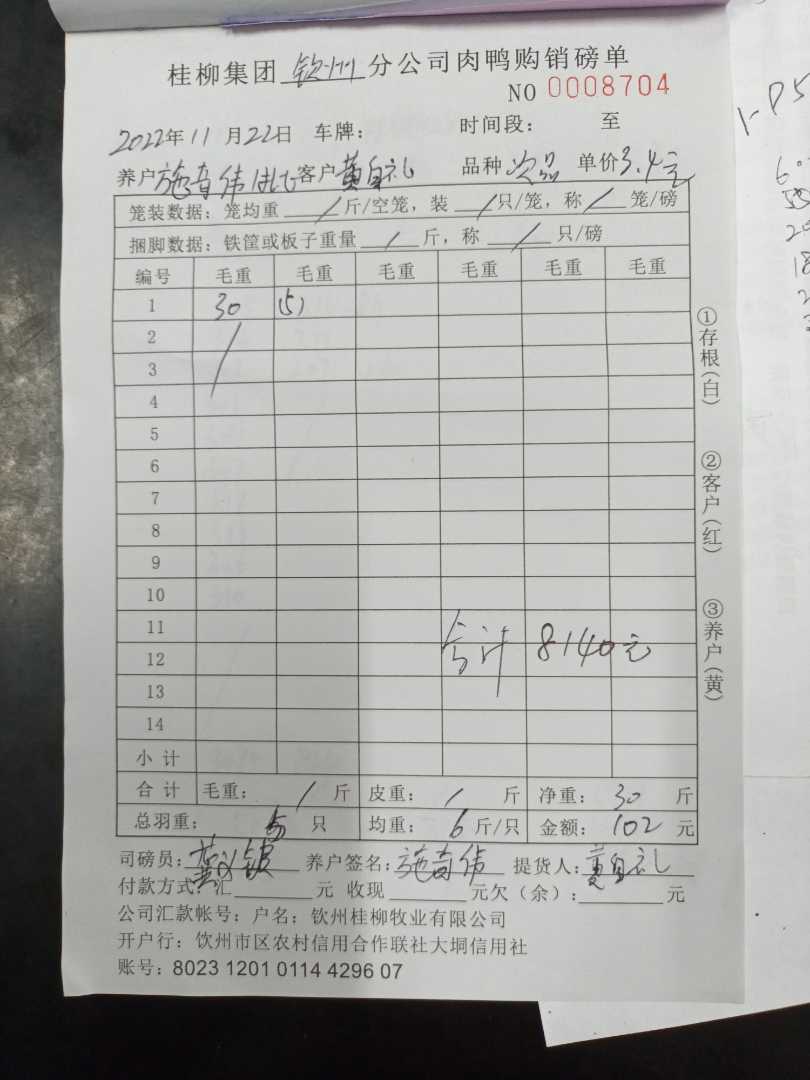 桂柳集团 钦州 分公司肉鸭购销磅单
NO 0008704
2022年11月22日 车牌: 时间段: 至
养户 施奇伟 客户 黄自礼 品种 次品 单价3.4元
笼装数据: 笼均重 / 斤/空笼, 装 / 只/笼, 称 / 笼/磅
捆脚数据: 铁筐或板子重量 / 斤, 称 / 只/磅
编号 毛重 毛重 毛重 毛重 毛重 毛重
1 30 (5)
2 /
3
4
5
6
7
8
9
10
11
合计 8140元
12
13
14
小计
合计 毛重: / 斤 皮重: / 斤 净重: 30 斤
总羽重: 5 只 均重: 6 斤/只 金额: 102 元
司磅员: 养户签名: 施奇伟 提货人: 黄自礼
付款方式: 汇 元 收现 元欠(余): 元
公司汇款帐号: 户名: 钦州桂柳牧业有限公司
开户行: 饮州市区农村信用合作联社大垌信用社
账号: 8023 1201 0114 4296 07
①存根(白)
②客户(红)
③养户(黄)